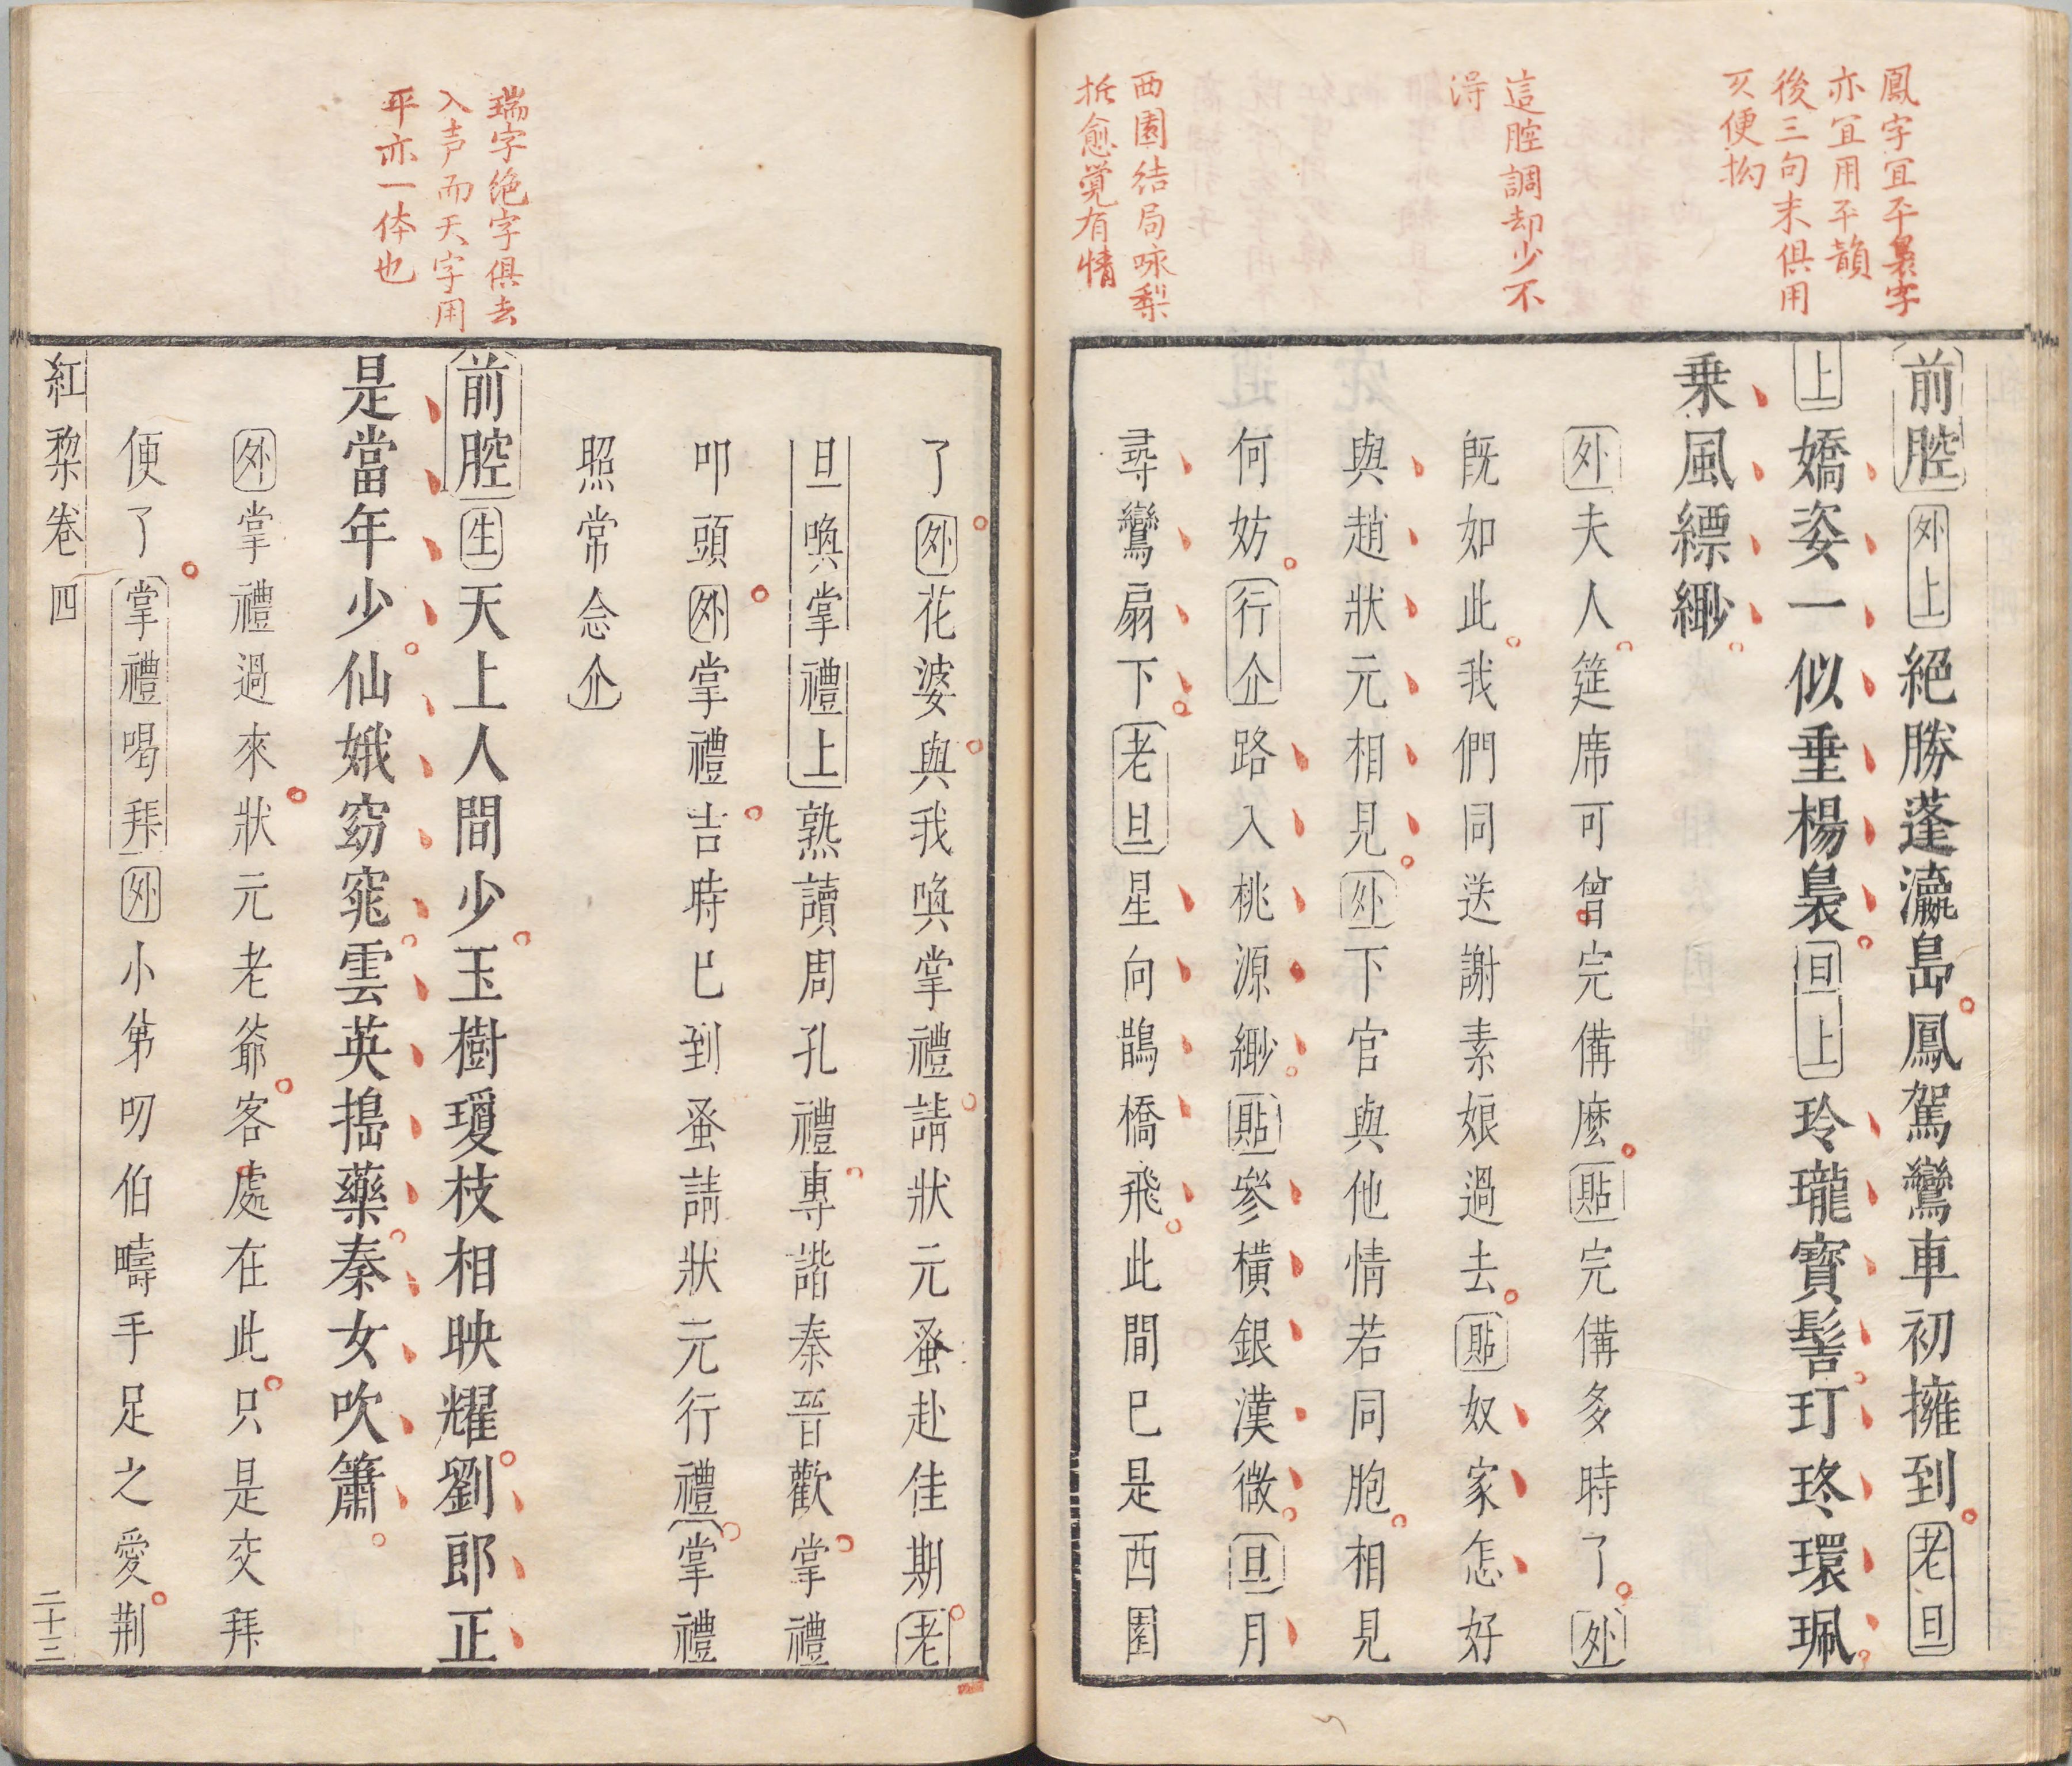 鳳字宜平裊字
亦宜用平韻
後三句末俱用
仄便拗
這腔調却少不
得
西園結局咏梨
拆愈覚有情
前腔外上絕勝蓬瀛島鳳駕鸞車初擁到老旦
上嬌姿一似垂楊裊旦上玲瓏寳髻玎珎環珮
乗風縹緲
外夫人筵席可曾完備麽貼完備多時了外
既如此我們同送謝素娘過去貼奴家怎好
與趙狀元相見外下官與他情若同胞相見
何妨行介路入桃源緲貼參橫銀漢微旦月
尋鸞扇下老旦星向鵲橋飛此間已是西園
了外花婆與我喚掌禮請狀元蚤赴佳期老
旦喚掌禮上熟讀周孔禮專諧秦晉歡掌禮
叩頭外掌禮吉時已到蚤請狀元行禮掌禮
照常念介
前腔生天上人間少玉樹瓊枝相映耀劉郎正
是當年少仙娥窈窕雲英搗藥秦女吹簫
外掌禮過來狀元老爺客處在此只是交拜
便了掌禮喝拜外小弟叨伯疇手足之愛荆
瑞字绝字俱去
入声而天字用
平亦一体也
紅梨卷四
二十三